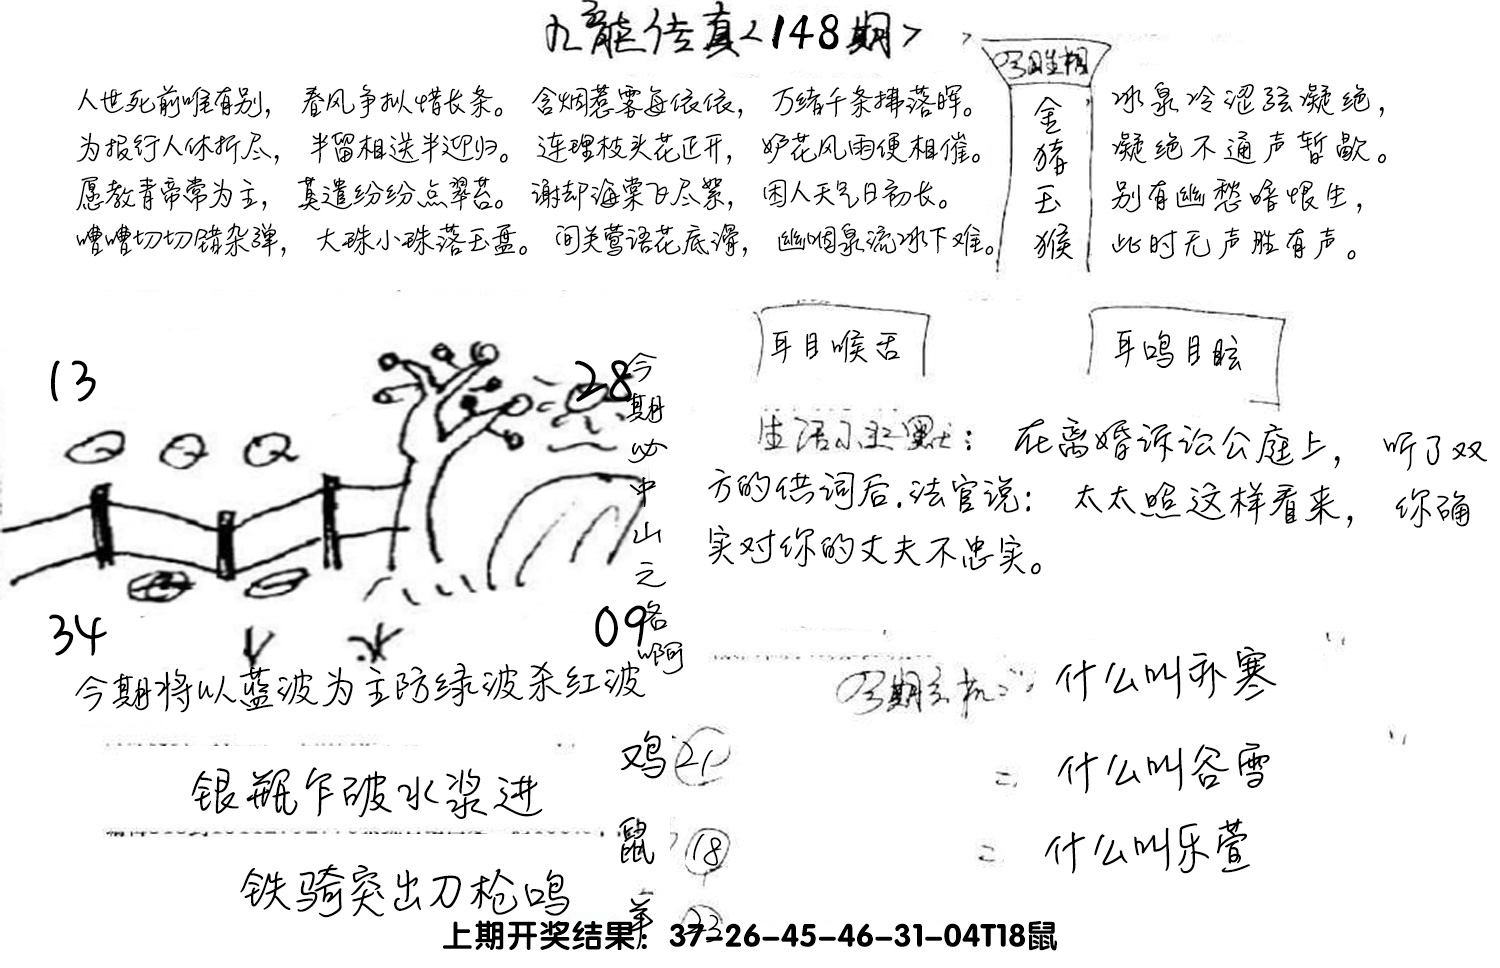 九龍传真<148期>
人世死前唯有别，春风争拟惜长条。含烟惹雾每依依，万绪千条拂落晖。
为报行人休折尽，半留相送半迎归。连理枝头花正开，妒花风雨便相催。
愿教青帝常为主，莫遣纷纷点翠苔。谢却海棠飞尽絮，困人天气日初长。
嘈嘈切切错杂弹，大珠小珠落玉盘。间关莺语花底滑，幽咽泉流冰下难。
金
猪
玉
猴
冰泉冷涩弦凝绝，
凝绝不通声暂歇。
别有幽愁暗恨生，
此时无声胜有声。
耳目喉舌
耳鸣目眩
13
28
34
09
今期必中山之各啊
生活小幽默：在离婚诉讼公庭上，听了双
方的供词后.法官说：太太照这样看来，你确
实对你的丈夫不忠实。
今期将以蓝波为主防绿波杀红波
今期玄机：什么叫祁寒
什么叫谷雪
什么叫乐萱
银瓶乍破水浆进
铁骑突出刀枪鸣
鸡 21
鼠 18
羊 23
上期开奖结果：37-26-45-46-31-04T18鼠